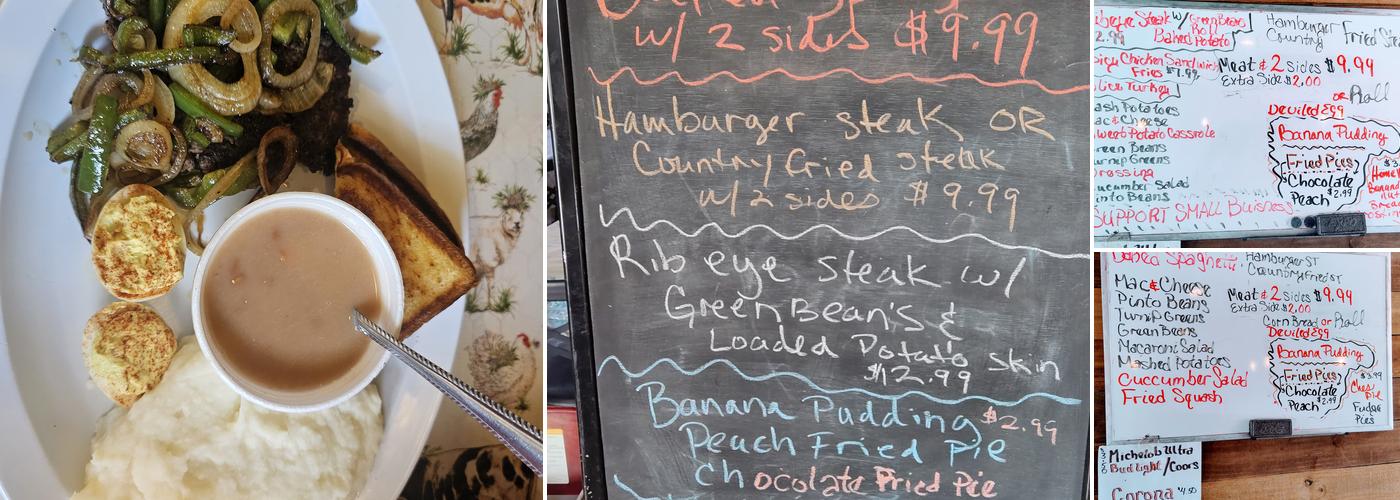 w/ 2 sides $9.99
Hamburger steak OR
Country fried steak
w/ 2 sides $9.99
Rib eye steak w/
Green Bean's &
Loaded Potato skin
$12.99
Banana Pudding $2.99
Peach Fried Pie
Chocolate Fried Pie
Steak w/ Green Beans
Roll
Baked Potato
2.99
Chicken Sandwich
Fries $7.99
Turkey
Mac & Cheese
Sweet Potato Casserole
Green Beans
Turnip Greens
Dressing
Cucumber Salad
Pinto Beans
SUPPORT SMALL Buisness
Hamburger
Country Fried
Meat & 2 Sides $9.99
Extra Side $2.00
OR Roll
Deviled Egg
Banana Pudding
Fried Pies
Chocolate
$2.99
Peach
Spaghetti
Mac & Cheese
Pinto Beans
Turnip Greens
Green Beans
Macaroni Salad
Mashed Potatoes
Cuccumber Salad
Fried Squash
Hamburger ST
Country Fried ST
Meat & 2 Sides $9.99
Extra Side $2.00
Corn Bread or Roll
Deviled Egg
Banana Pudding
Fried Pies
Chocolate
$2.99
Peach
$3.99
Pie
Fudge
Pies
Michelob Ultra
Bud light / Coors
Corona $4.50